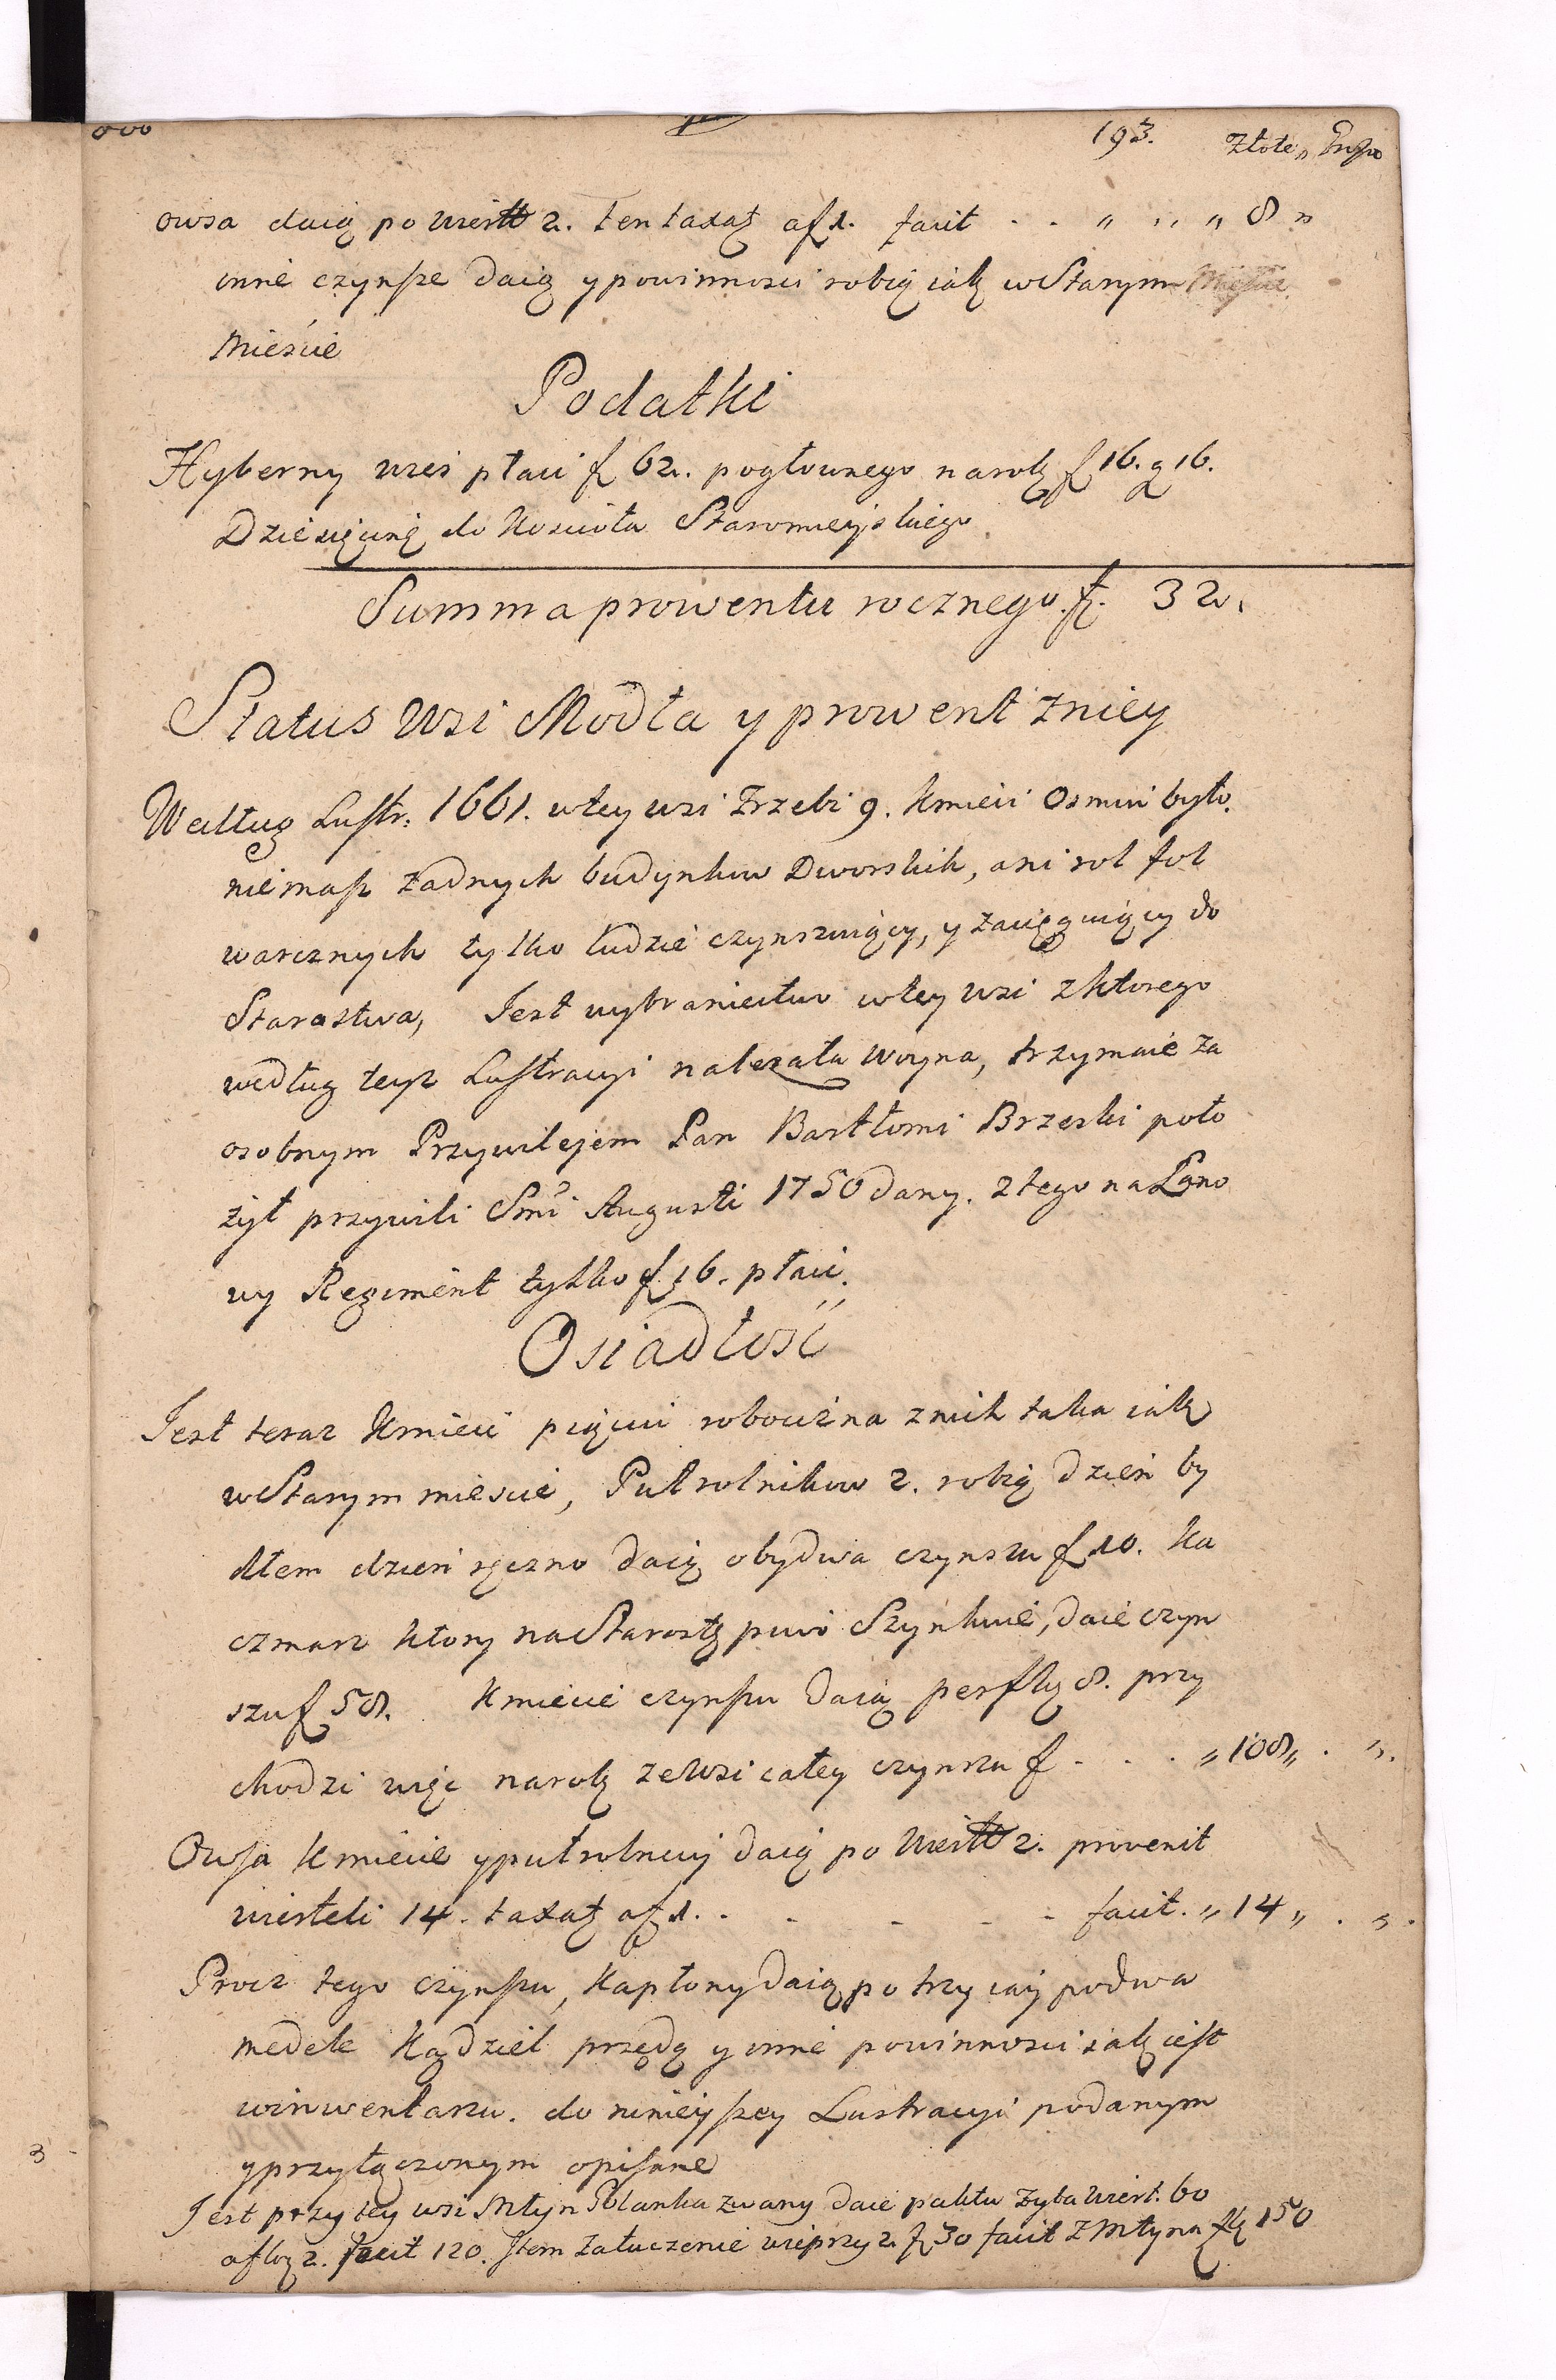 193. Złote, Grosze
owsa daią po wiertt 2. ten taxaą a f 1. facit - - " " " 8 "
inne czynsze daią y powinnosci robią iak w Starym
Mieście
Podatki
Hyberny wieś płaci f 62. pogłownego na rok f 16. g 16.
Dziesięcinę do Kościoła Staromieyskiego
Summa prowentu rocznego. f. 32.
Status Wsi Modła y prowent z niey
Według Lustr: 1661. w tey wsi Zrzebi 9. Kmieci Osmiu było.
niemasz żadnych budynkow Dworskich, ani rol fol
warcznych tylko ludzie czynszuiący, y zaciąguiący do
Starostwa, Jest wybraniectwo w tey wsi z ktorego
według teyz Lustracyi należała Woyna, trzymaie za
osobnym Przywilejem Pan Barttomi Brzeski poło
żył przywili Smi Augusti 1750 dany. z tego na Łano
wy Regiment tylko f 16. płaci.
Osiadłość
Jest teraz Kmieci pięciu robocizna z nich taka iak
w Starym mieście, Puł rolnikow 2. robią dzień by
dłem dzień ręczno daią obydwa czynszu f 10. Ka
czmarz ktory na Starostę piwo Szynkuie, daie czyn
szu f 58. Kmiecie czynszu daią per flg 8. przy
chodzi więc na rok ze Wsi całey czynszu f - - - " 108 " . ".
Owsa Kmiecie y pułrolnicy daią po Wiertt 2. provenit
wierteli 14. taxaą a f 1. - - - - - facit. " 14 " . " .
Procz tego czynszu, Kapłony daią po trzy iay po dwa
medele Kądziel przędą y inne powinnosci iak iest
w inwentarzu. do ninieyszey Lustracyi podanym
y przyłączonym opisane
Jest przy tey wsi Młyn Polanka zwany daie paktu Zyta Wiert. 60
a flg 2. facit 120. Item Zatuczenie wieprzy 2. f 30 facit z Młyna flg 150